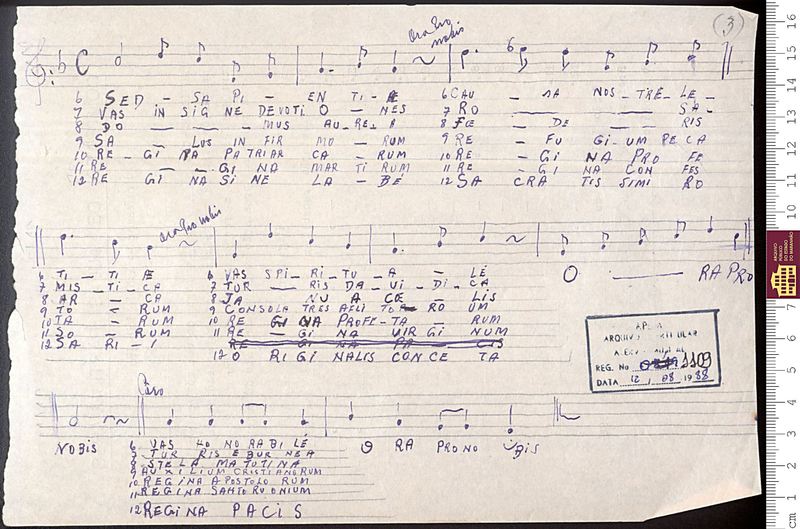 Ora Pro
nobis
(3)
6 SED - SA PI - EN TI - Æ 6 CAU - SA NOS - TRE - LE -
7 VAS IN SIG NE DEVOTI O - NES 7 RO SA -
8 DO - MUS AU - RE - A 8 FE - DE - RIS
9 SA - LUS IN FIR MO - RUM 9 RE - FU GI - UM PE CA
10 RE - GI NA PA TRIAR CA - RUM 10 RE - GI NA PRO FE
11 RE - GI NA MAR TI RUM 11 RE - GI NA CON FES
12 RE GI NA SI NE LA - BÉ 12 SA CRA TIS SIMI RO
Ora Pro nobis
6 TI - TI Æ 6 VAS SPI - RI - TU - A - LÉ O RA PRO
7 MIS - TI - CA 7 TOR - RIS DA - VI - DI - CA
8 AR - CA 8 JA NU A CŒ - LIS
9 TO - RUM 9 CONSOLA TRES AFLI TO RO UM
10 TA - RUM 10 RE GI NA PROFE - TA - RUM
11 SO - RUM 11 RE - GI NA VIR GI NUM
12 SA RI - I RE GI NA PA - CIS
12 O RI GI NALIS CONCE TA
ARQUIVO
REG. No 1109
DATA 12 / 08 19 88
Coro
NOBIS 6 VAS HO NO RA BI LÉ O RA PRO NO BIS
7 TUR RIS EBUR NEA
8 STELA MATUTINA
9 AUXILIUM CRISTIANORUM
10 REGINA APOSTOLO RUM
11 REGINA SANTO RU ONIUM
12 REGINA PACIS
cm 1 2 3 4 5 6 7 8 9 10 11 12 13 14 15 16